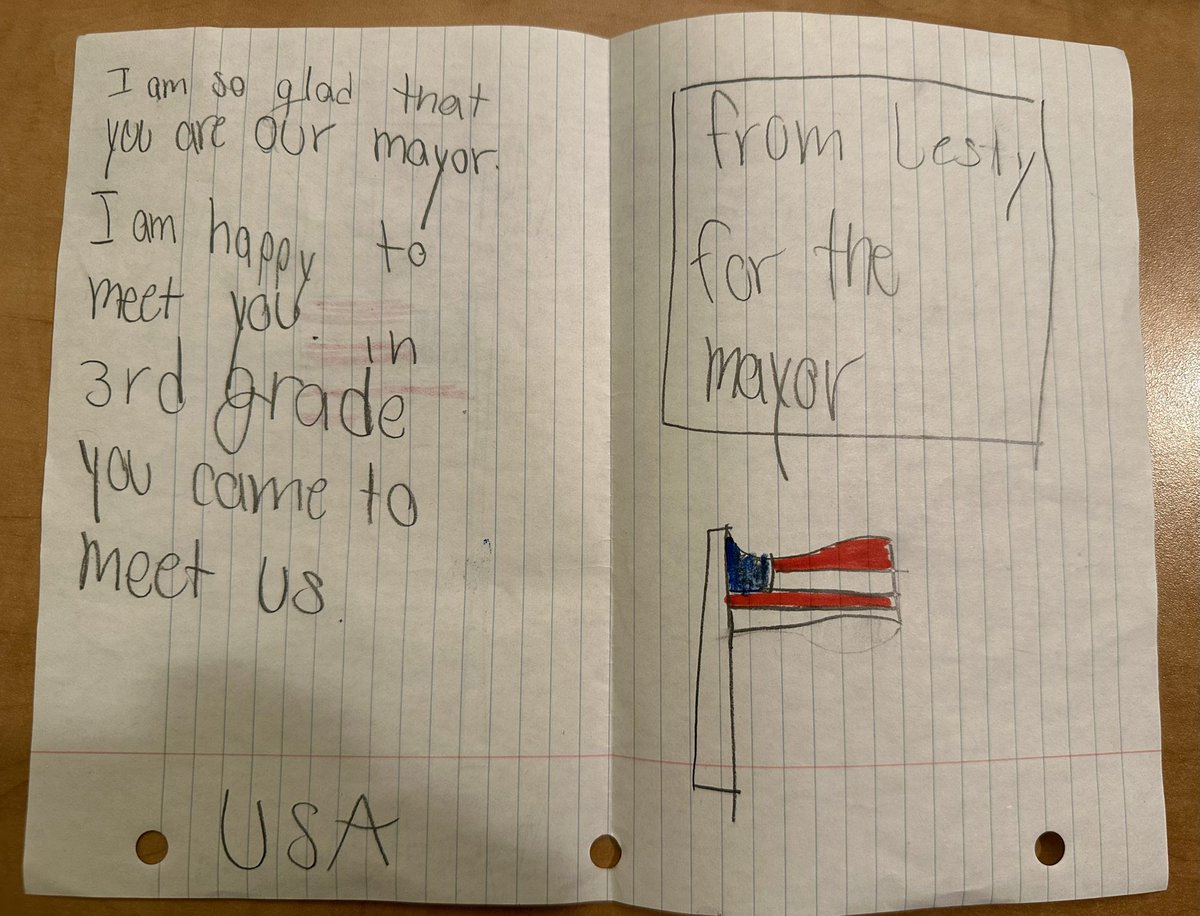 I am so glad that
you are our mayor.
I am happy to
meet you.
in
3rd grade
you came to
meet us.
USA
from Lesty
for the
mayor